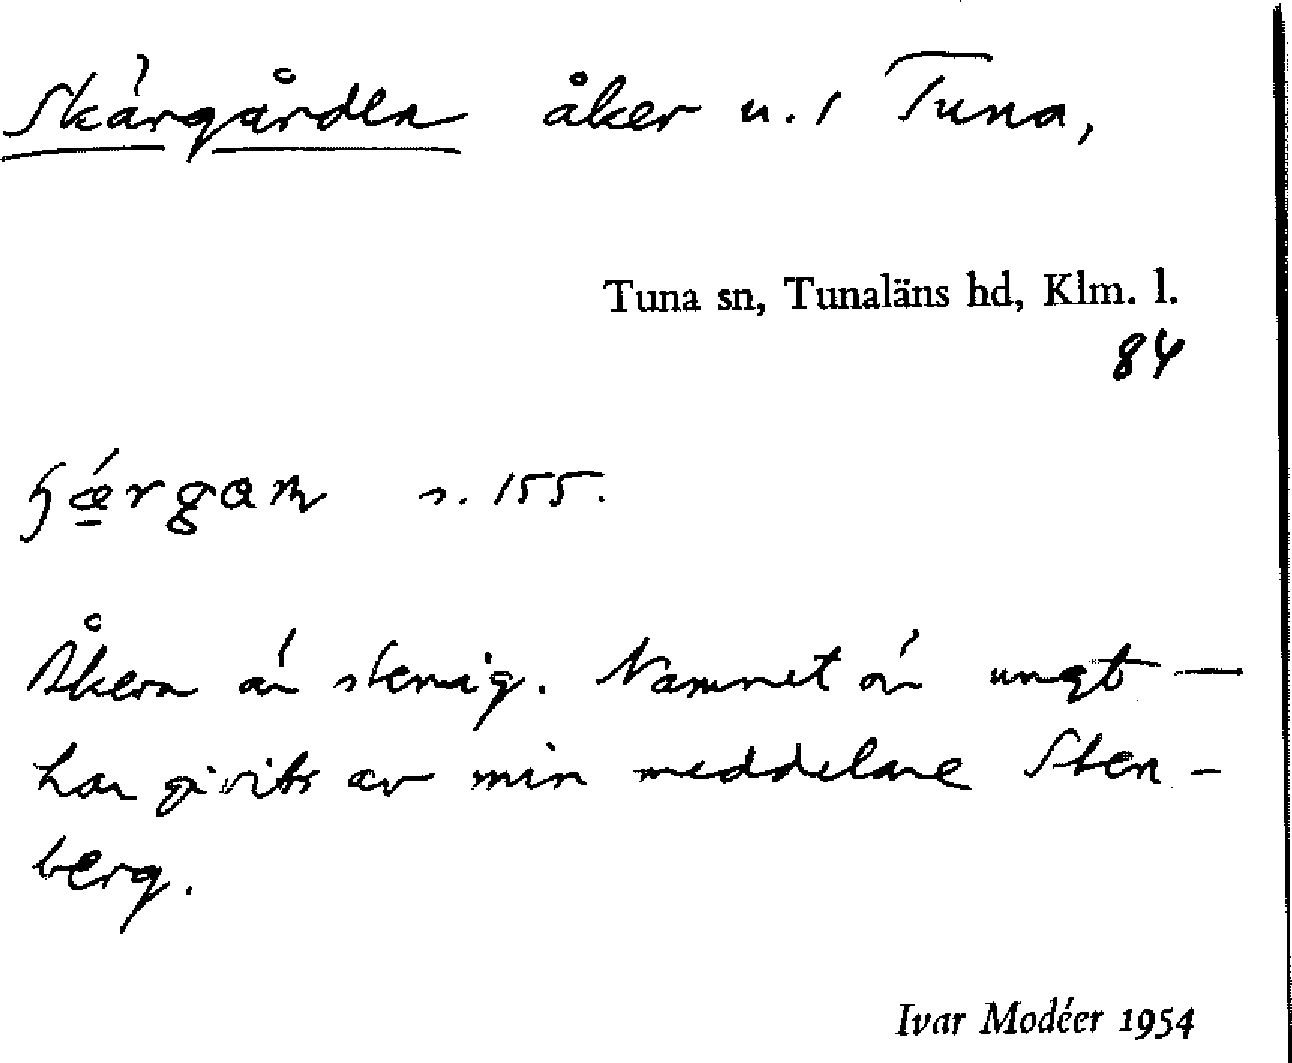 Skärgården åker u. 1 Tuna,
Tuna sn, Tunaläns hd, Klm. l.
84
s. 155.
Åkern är stenig. Namnet är ungt —
har givits av min meddelare Sten-
berg.
Ivar Modéer 1954